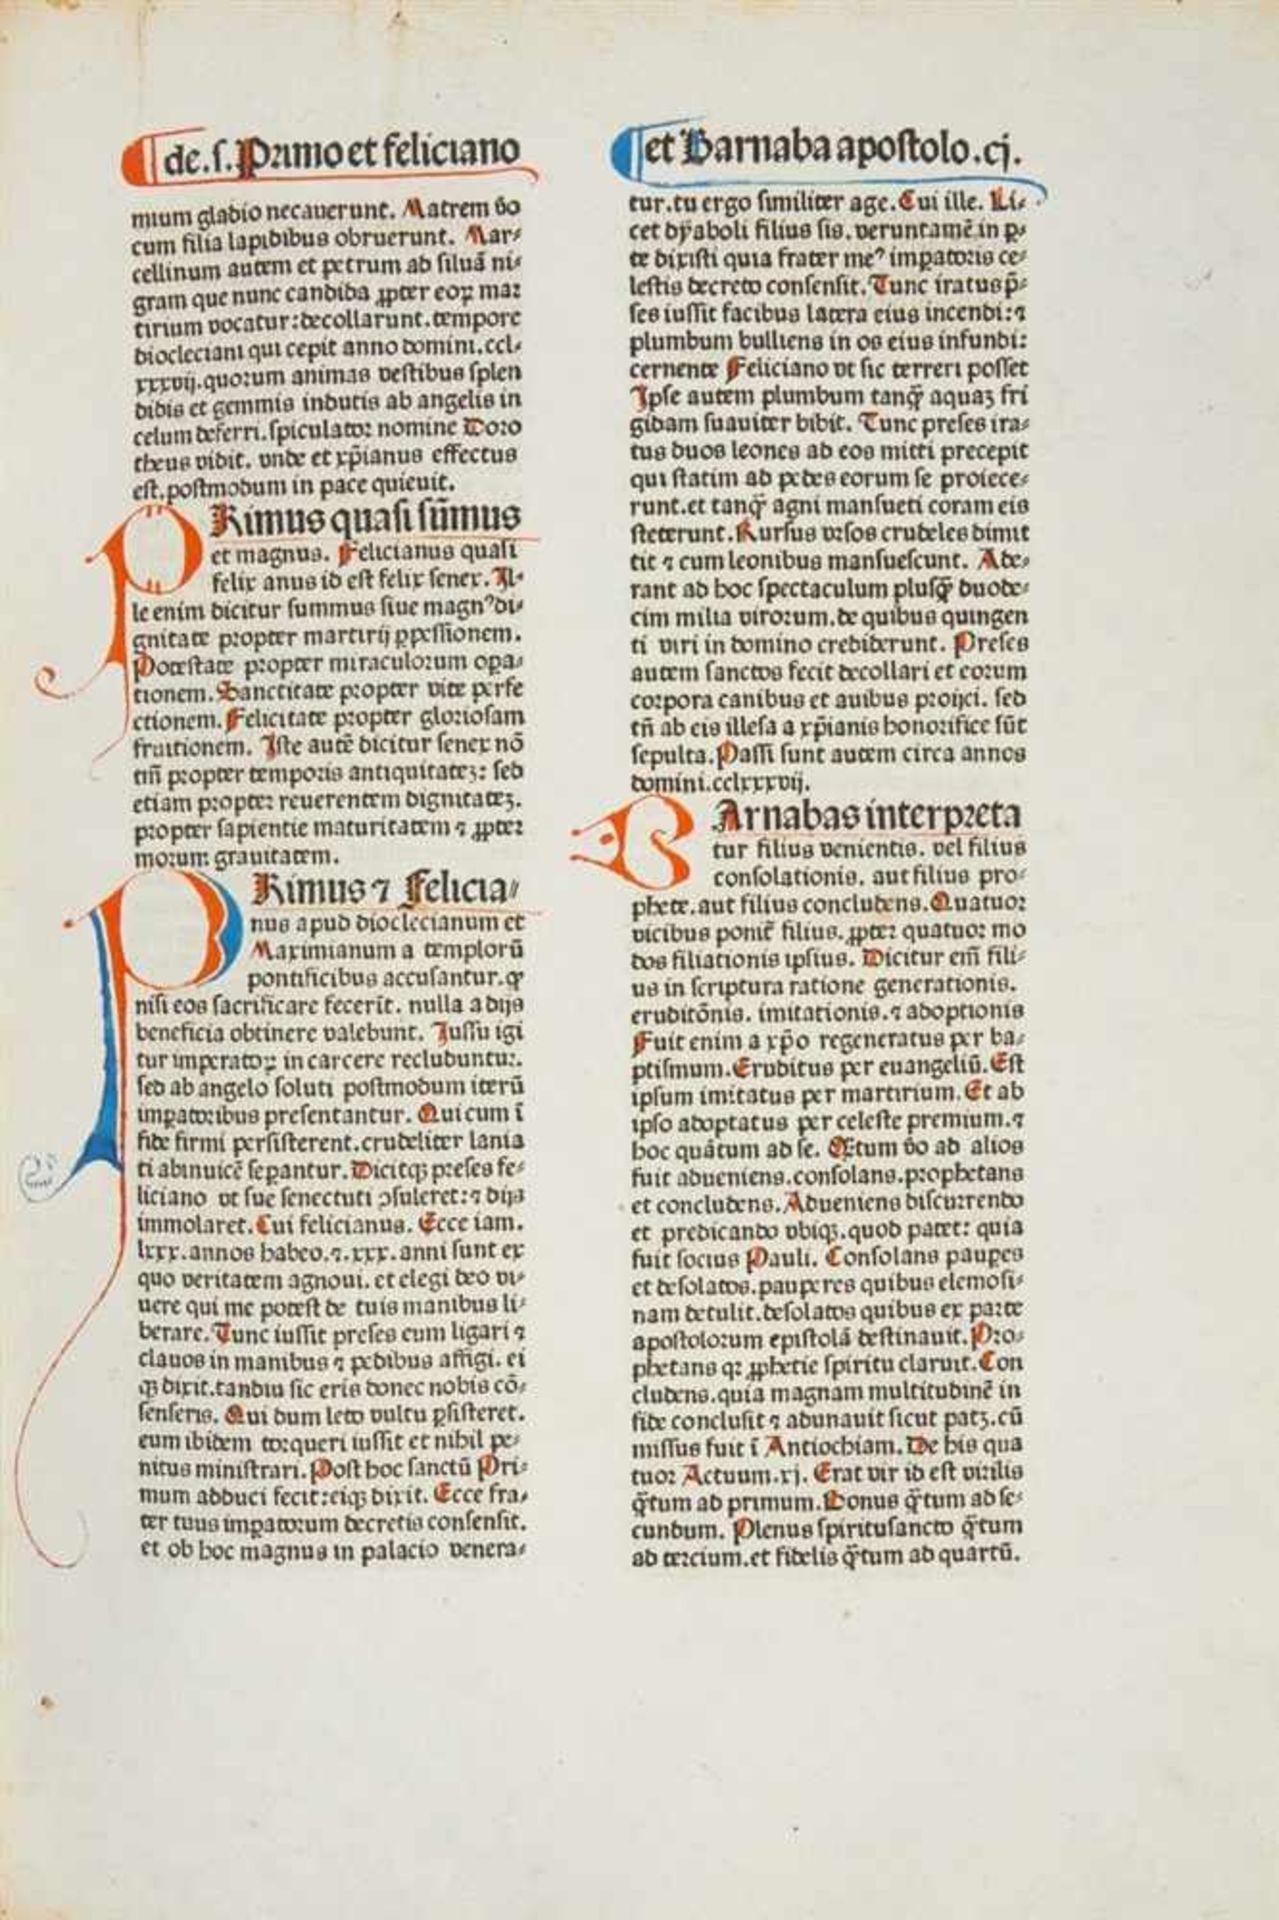 de.ſ. Primo et feliciano
mium gladio necauerunt. Matrem v̄o
cum filia lapidibus obruerunt. Mar⸗
cellinum autem et petrum ab ſiluā ni⸗
gram que nunc candida ꝓpter eoꝝ mar
tirium vocatur: decollarunt. tempore
diocleciani qui cepit anno domini. ccl⸗
xxxvij. quorum animas veſtibus ſplen
didis et gemmis indutis ab angelis in
celum deferri. ſpiculator nomine Doro
theus vidit. vnde et xp̄ianus effectus
eſt. poſtmodum in pace quieuit.
PRimus quaſi ſūmus
et magnus. Felicianus quaſi
felix anus id eſt felix ſenex. Il⸗
le enim dicitur ſummus ſiue magnꝰ di⸗
gnitate propter martirij ꝑpeſſionem.
Poteſtate propter miraculorum oꝑa⸗
tionem. Sanctitate propter vite perfe
ctionem. Felicitate propter glorioſam
fruitionem. Iſte autē dicitur ſenex nō
tm̄ propter temporis antiquitatеꝫ: ſed
etiam propter reuerentem dignitateꝫ.
propter ſapientie maturitatem ⁊ ꝓpter
morum grauitatem.
PRimus ⁊ Felicia⸗
nus apud dioclecianum et
Maximianum a templorū
pontificibus accuſantur. ꝙ
niſi eos ſacrificare fecerīt. nulla a dijs
beneficia obtinere valebunt. Juſſu igi
tur imperatoꝝ in carcere recluduntur.
ſed ab angelo ſoluti poſtmodum iterū
imꝑatoribus preſentantur. Qui cum ī
fide firmi perſiſterent. crudeliter lania
ti abinuicē ſeꝑantur. Dicitqꝫ preſes fe⸗
liciano vt ſue ſenectuti ↄſuleret: ⁊ dijs
immolaret. Cui felicianus. Ecce iam.
lxxx. annos habeo. ⁊. xxx. anni ſunt ex
quo veritatem agnoui. et elegi deo vi⸗
uere qui me poteſt de tuis manibus li⸗
berare. Tunc iuſſit preſes eum ligari ⁊
clauos in manibus ⁊ pedibus affigi. ei
qꝫ dixit. tandiu ſic eris donec nobis cō⸗
ſenſeris. Qui dum leto vultu ꝑſiſteret.
eum ibidem torqueri iuſſit et nihil pe⸗
nitus miniſtrari. Poſt hoc ſanctū Pri⸗
mum adduci fecit: eiqꝫ dixit. Ecce fra⸗
ter tuus imꝑatorum decretis conſenſit.
et ob hoc magnus in palacio venera⸗
et Barnaba apoſtolo. cj.
tur. tu ergo ſimiliter age. Cui ille. Li⸗
cet dyaboli filius ſis. veruntamē in ꝑ⸗
te dixiſti quia frater meꝰ imꝑatoris ce⸗
leſtis decreto conſenſit. Tunc iratus p̄⸗
ſes iuſſit facibus latera eius incendi: ⁊
plumbum bulliens in os eius infundi:
cernente Feliciano vt ſic terreri poſſet
Ipſe autem plumbum tanq̄ aquaꝫ fri
gidam ſuauiter bibit. Tunc preſes ira⸗
tus duos leones ad eos mitti precepit
qui ſtatim ad pedes eorum ſe proiece⸗
runt. et tanq̄ agni manſueti coram eis
ſteterunt. Kurſus vrſos crudeles dimit
tit ⁊ cum leonibus manſueſcunt. Ade⸗
rant ad hoc ſpectaculum pluſq̄ duode⸗
cim milia virorum. de quibus quingen
ti viri in domino crediderunt. Preſes
autem ſanctos fecit decollari et eorum
corpora canibus et auibus proijci. ſed
tn̄ ab eis illeſa a xp̄ianis honorifice ſūt
ſepulta. Paſſi ſunt autem circa annos
domini. cclxxxvij.
BArnabas interpreta
tur filius venientis. vel filius
conſolationis. aut filius pro⸗
phete. aut filius concludens. Quatuor
vicibus ponit̄ filius. ꝓpter quatuor mo
dos filiationis ipſius. Dicitur em̄ fili⸗
us in ſcriptura ratione generationis.
eruditōnis. imitationis. ⁊ adoptionis
Fuit enim a xp̄o regeneratus per ba⸗
ptiſmum. Eruditus per euangeliū. Eſt
ipſum imitatus per martirium. Et ab
ipſo adoptatus per celeſte premium. ⁊
hoc quātum ad ſe. Q̄tum v̄o ad alios
fuit adueniens. conſolans. prophetans
et concludens. Adueniens diſcurrendo
et predicando vbiqꝫ. quod patet: quia
fuit ſocius Pauli. Conſolans pauꝑes
et deſolatos. pauperes quibus elemoſi⸗
nam detulit. deſolatos quibus ex parte
apoſtolorum epiſtolā deſtinauit. Pro⸗
phetans qr ꝓphetie ſpiritu claruit. Con
cludens. quia magnam multitudinē in
fide concluſit ⁊ adunauit ſicut patꝫ. cū
miſſus fuit ī Antiochiam. De his qua
tuor Actuum. xj. Erat vir id eſt virilis
q̄tum ad primum. Bonus q̄tum ad ſe⸗
cundum. Plenus ſpirituſancto q̄tum
ad tercium. et fidelis q̄tum ad quartū.